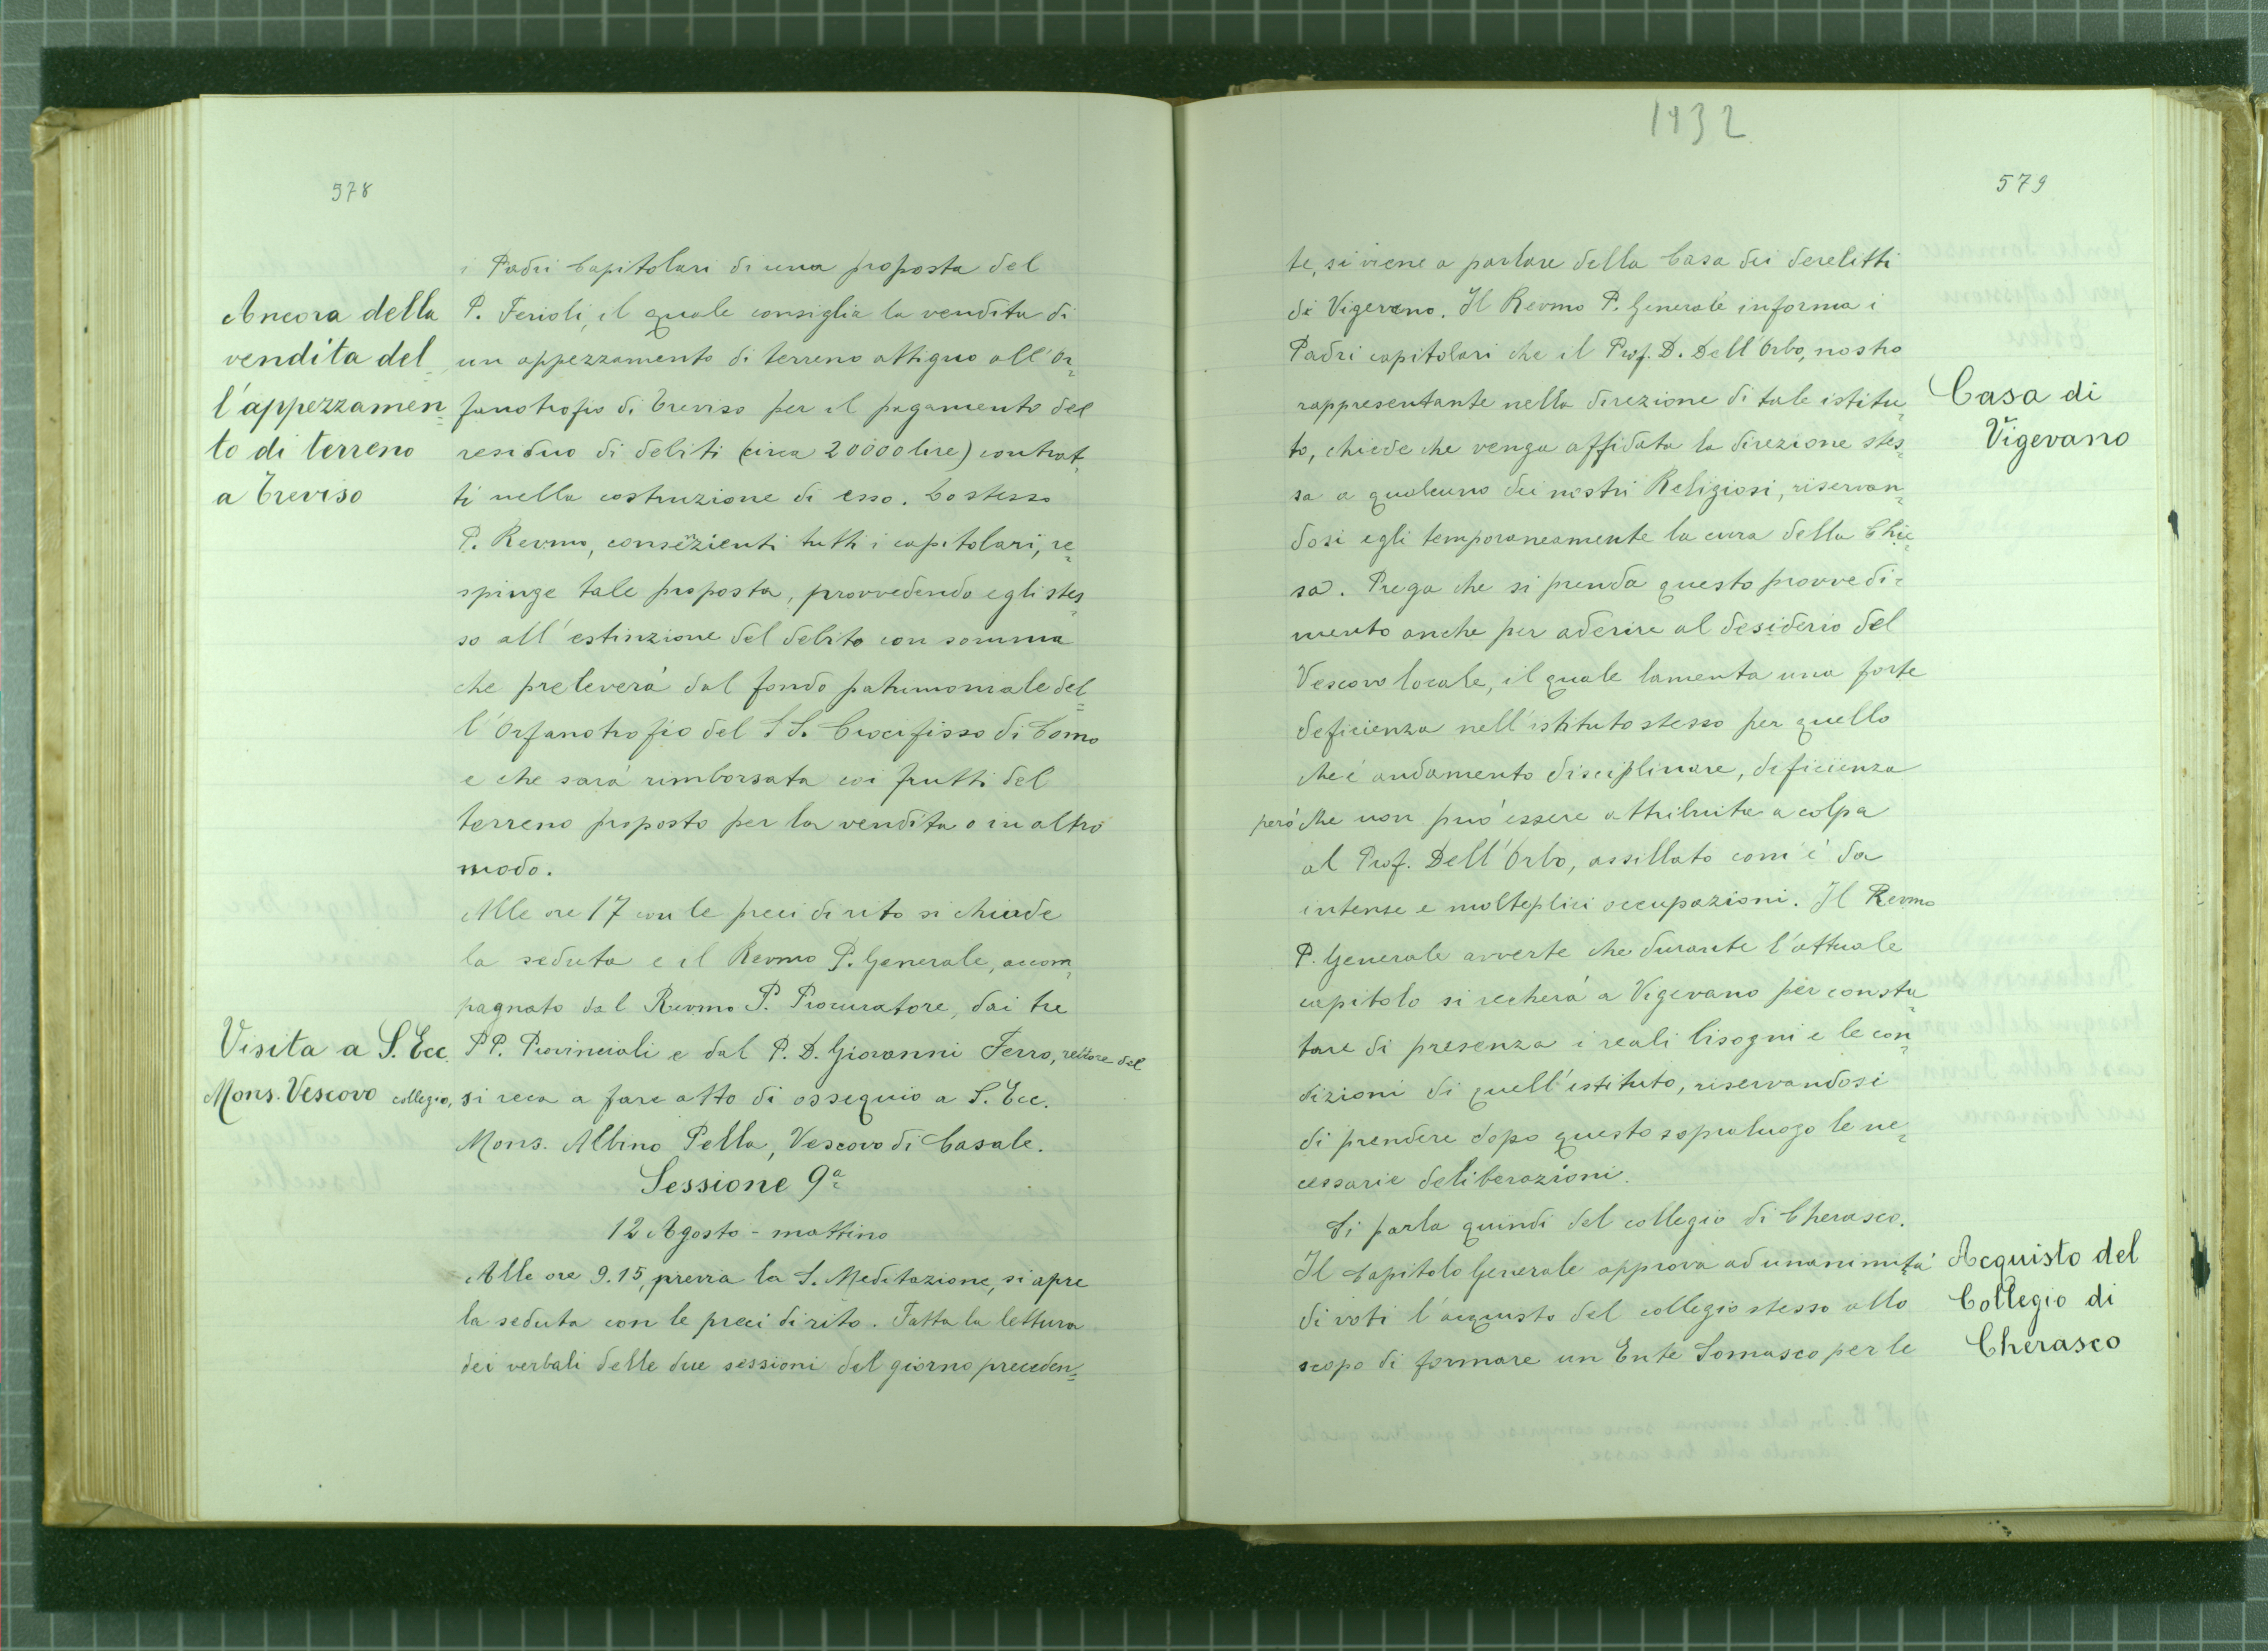 578
i Padri Capitolari di una proposta del
Ancora della
vendita del=
l'appezzamen=
to di terreno
a Treviso
P. Ferioli, il quale consiglia la vendita di
un appezzamento di terreno attiguo all'Or=
fanotrofio di Treviso per il pagamento del
residuo di debiti (circa 20000 lire) contrat=
ti nella costruzione di esso. Lo stesso
P. Revmo, consenzienti tutti i capitolari, re=
spinge tale proposta, provvedendo egli stes=
so all'estinzione del debito con somma
che preleverà dal fondo patrimoniale del=
l'Orfanotrofio del SS. Crocifisso di Como
e che sarà rimborsata coi frutti del
terreno proposto per la vendita o in altro
modo.
Alle ore 17 con le preci di rito si chiude
la seduta e il Revmo P. Generale, accom=
pagnato dal Revmo P. Procuratore, dai tre
Visita a S. Ecc.
Mons. Vescovo
PP. Provinciali e dal P. D. Giovanni Ferro, rettore del
collegio, si reca a fare atto di ossequio a S. Ecc.
Mons. Albino Pella, Vescovo di Casale.
Sessione 9ª
12 Agosto - mattino
Alle ore 9.15, previa la S. Meditazione, si apre
la seduta con le preci di rito. Fatta la lettura
dei verbali delle due sessioni del giorno preceden=
1932
579
te, si viene a parlare della Casa dei derelitti
di Vigevano. Il Revmo P. Generale informa i
Padri capitolari che il Prof. D. Dell'Orbo, nostro
rappresentante nella direzione di tale istitu=
to, chiede che venga affidata la direzione stes=
sa a qualcuno dei nostri Religiosi, riservan=
dosi egli temporaneamente la cura della Chie=
sa. Prega che si prenda questo provvedi=
mento anche per aderire al desiderio del
Vescovo locale, il quale lamenta una forte
deficienza nell'istituto stesso per quello
che è andamento disciplinare, deficienza
però che non può essere attribuita a colpa
al Prof. Dell'Orbo, assillato com'è da
intense e molteplici occupazioni. Il Revmo
P. Generale avverte che durante l'attuale
capitolo si recherà a Vigevano per consta=
tare di presenza i reali bisogni e le con=
dizioni di quell'istituto, riservandosi
di prendere dopo questo sopraluogo le ne=
cessarie deliberazioni.
Casa di
Vigevano
Si parla quindi del collegio di Cherasco.
Il Capitolo Generale approva ad unanimità
di voti l'acquisto del collegio stesso allo
scopo di formare un Ente Somasco per le
Acquisto del
Collegio di
Cherasco